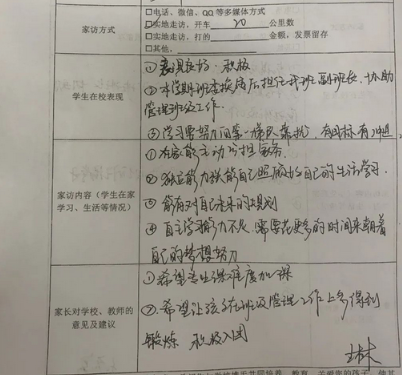 家访方式
□电话、微信、QQ 等多媒体方式
□实地走访，开车 20 公里数
□实地走访，打的 金额，发票留存
□其他，
学生在校表现
①表现良好、积极
②本学期班委换届后担任我班副班长，协助
管理班级工作
③学习需努力向第一梯队靠拢，有目标有冲进
家访内容（学生在家
学习、生活等情况）
①在家能主动分担家务
②独立能力强能自己照顾好自己的生活学习.
③能有对自己未来的规划
④自主学习能力不足 需要花更多的时间来朝着
自己的梦想努力
家长对学校、教师的
意见及建议
①希望考生课难度加深
②希望让孩子在班级管理工作上多得到
锻炼 积极入团